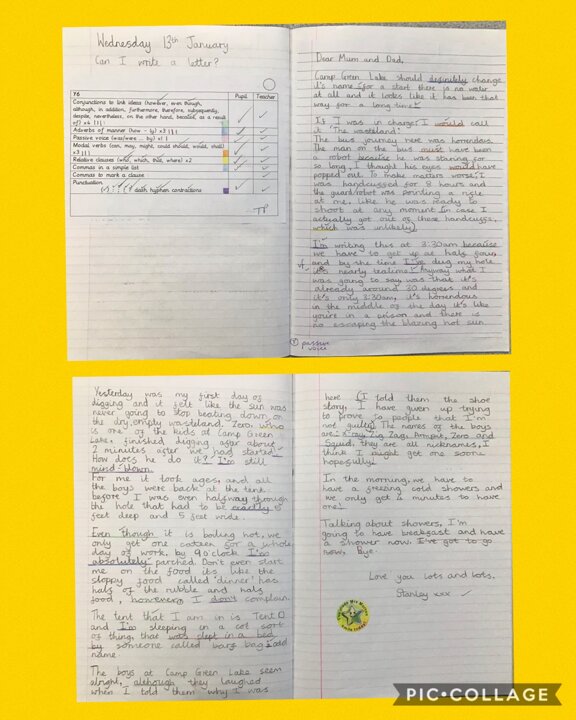 Wednesday 13th January
Can I write a letter?
Y6
Pupil
Teacher
Conjunctions to link ideas (however, even though,
although, in addition, furthermore, therefore, subsequently,
despite, nevertheless, on the other hand, because, as a result
of) x4
Adverbs of manner (how - ly) x3
Passive voice (was/were .. by) x1
Modal verbs (can, may, might, could should, would, shall)
x3
Relative clauses (who, which, that, where) x2
Commas in a simple list
Commas to mark a clause
Punctuation
dash, hyphen, contractions
TP
Dear Mum and Dad,
Camp Green Lake should definitely change
it's name - for a start there is no water
at all and it looks like it has been that
way for a long time!
If I was in charge, I would call
it 'The wasteland!'
The bus journey here was horrendous.
The man on the bus must have been
a robot because he was staring for
so long, I thought his eyes would have
popped out. To make matters worse, I
was handcuffed for 8 hours and
the guard/robot was pointing a rifle
at me, like he was ready to
shoot at any moment (in case I
actually got out of these handcuffs,
which was unlikely).
I'm writing this at 3:30am because
we have to get up at half four,
and by the time I've dug my hole
it's nearly teatime! Anyway what I
was going to say was that it's
already around 30 degrees and
it's only 3:30am, it's horrendous
in the middle of the day it's like
you're in a prison and there is
no escaping the blazing hot sun.
passive
voice
Yesterday was my first day of
digging and it felt like the sun was
never going to stop beating down on
the dry, empty wasteland. Zero, who
is one of the kids at Camp Green
Lake, finished digging after about
2 minutes after we had started!
How does he do it? I'm still
mind-blown.
For me it took ages, and all
the boys were back at the tent
before I was even halfway through
the hole that had to be exactly 5
feet deep and 5 feet wide.
Even though it is boiling hot, we
only get one canteen for a whole
day of work, by 9 o'clock I'm
absolutely parched. Don't even start
me on the food its like the
sloppy food called 'dinner' has
half of the rubble and half
food, however, I don't complain.
The tent that I am in is Tent D
and I'm sleeping in a cot sort
of thing, that was slept in a bed
by someone called barf bag (odd
name
The boys at Camp Green Lake seem
alright, although they laughed
when I told them why I was
here (I told them the shoe
story, I have given up trying
to prove to people that I'm
not guilty). The names of the boys
are: X-ray, Zig Zag, Armpit, Zero and
Squid, they are all nicknames, I
think I might get one soon
hopefully!
In the morning, we have to
have a freezing cold showers and
we only get 4 minutes to have
one!
Talking about showers, I'm
going to have breakfast and have
a shower now. I've got to go
now, Bye.
Love you lots and lots,
Stanley xxx
PIC•COLLAGE